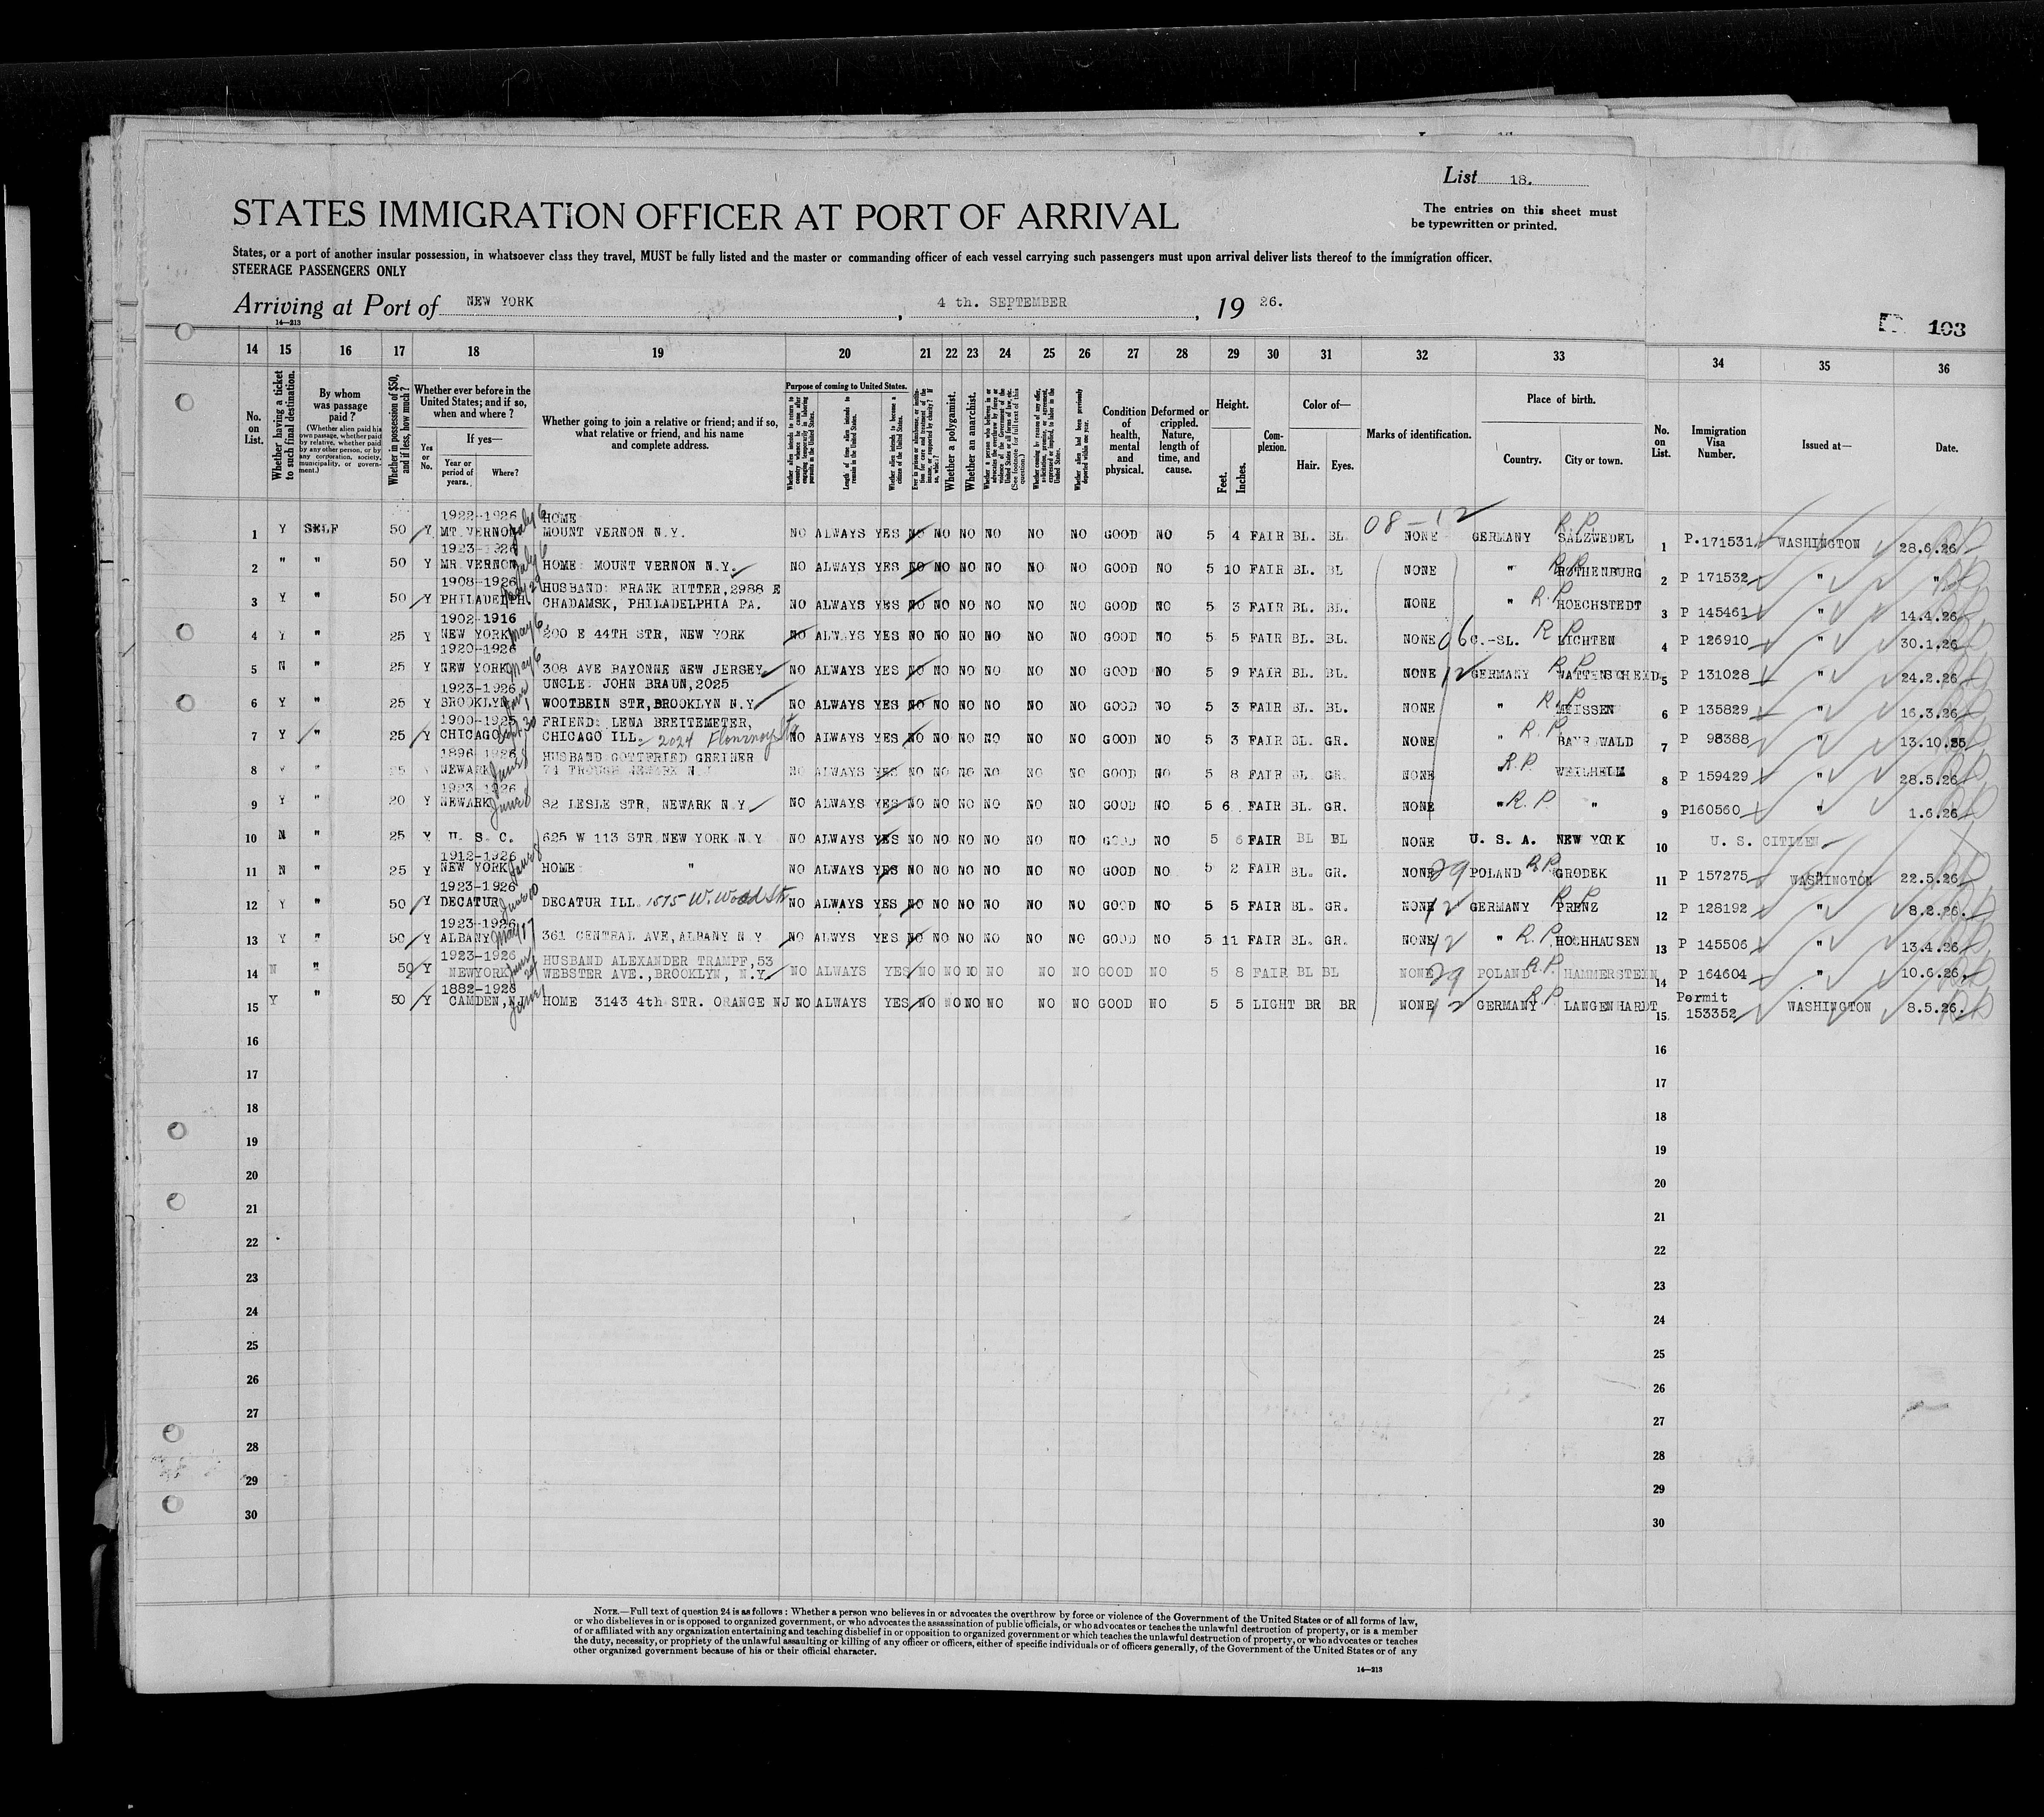 List 18.
The entries on this sheet must
be typewritten or printed.
STATES IMMIGRATION OFFICER AT PORT OF ARRIVAL
States, or a port of another insular possession, in whatsoever class they travel, MUST be fully listed and the master or commanding officer of each vessel carrying such passengers must upon arrival deliver lists thereof to the immigration officer.
STEERAGE PASSENGERS ONLY
Arriving at Port of NEW YORK, 4 th. SEPTEMBER, 19 26.
14—213
103
14 15 16 17 18 19 20 21 22 23 24 25 26 27 28 29 30 31 32 33 34 35 36
No. on List.
Whether having a ticket to such final destination.
By whom was passage paid?
(Whether alien paid his own passage, whether paid by relative, whether paid by any other person, or by any corporation, society, municipality, or government.)
Whether in possession of $50, and if less, how much?
Whether ever before in the United States; and if so, when and where?
Yes or No.
If yes—
Year or period of years.
Where?
Whether going to join a relative or friend; and if so, what relative or friend, and his name and complete address.
Purpose of coming to United States.
Length of time alien intends to remain in the United States.
Whether alien intends to become a citizen of the United States.
Whether a polygamist.
Whether an anarchist.
Condition of health, mental and physical.
Deformed or crippled. Nature, length of time, and cause.
Height.
Feet. Inches.
Complexion.
Color of—
Hair. Eyes.
Marks of identification.
Place of birth.
Country. City or town.
No. on List.
Immigration Visa Number.
Issued at—
Date.
08-12
1922-1926 July 6 HOME
1 Y SELF 50 Y MT. VERNON MOUNT VERNON N.Y. NO ALWAYS YES NO NO NO NO NO NO GOOD NO 5 4 FAIR BL. BL NONE GERMANY R.P. SALZWEDEL 1 P.171531 WASHINGTON 28.6.26
1923-1926 July 6
2 " " 50 Y MR VERNON HOME: MOUNT VERNON N.Y. NO ALWAYS YES NO NO NO NO NO NO GOOD NO 5 10 FAIR BL. BL NONE " R.P. ROTHENBURG 2 P 171532 " "
1908-1926 HUSBAND: FRANK RITTER, 2988 E
3 Y " 50 Y PHILADELPH. CHADAMSK, PHILADELPHIA PA. NO ALWAYS YES NO NO NO NO NO NO GOOD NO 5 3 FAIR BL. BL. NONE " R.P. HOECHSTEDT 3 P 145461 " 14.4.26
1902-1916 May 6
4 Y " 25 Y NEW YORK 200 E 44TH STR, NEW YORK NO ALWAYS YES NO NO NO NO NO NO GOOD NO 5 5 FAIR BL. BL. NONE 06 C.-SL. R P LICHTEN 4 P 126910 " 30.1.26
1920-1926 May 6
5 N " 25 Y NEW YORK 308 AVE BAYONNE NEW JERSEY NO ALWAYS YES NO NO NO NO NO NO GOOD NO 5 9 FAIR BL. BL. NONE 12 GERMANY R P WATTENSCHEID 5 P 131028 " 24.2.26
1923-1926 UNCLE: JOHN BRAUN, 2025
6 Y " 25 Y BROOKLYN WOOTBEIN STR, BROOKLYN N.Y NO ALWAYS YES NO NO NO NO NO NO GOOD NO 5 3 FAIR BL. BL. NONE " R.P. MEISSEN 6 P 135829 " 16.3.26
1900-1925 Sept 30 FRIEND: LENA BREITEMETER,
7 Y " 25 Y CHICAGO CHICAGO ILL. 2024 Flournoy Str NO ALWAYS YES NO NO NO NO NO NO GOOD NO 5 3 FAIR BL. GR. NONE " R.P. BAYR.WALD 7 P 98388 " 13.10.25
1896 1926 June 8 HUSBAND GOTTFRIED GREINER
8 Y " 25 Y NEWARK 74 TROUGH NEWARK N. NO ALWAYS YES NO NO NO NO NO NO GOOD NO 5 8 FAIR BL. GR. NONE " R.P. WEILHEIM 8 P 159429 " 28.5.26
1923 1926 June 8
9 Y " 20 Y NEWARK 82 LESLE STR, NEWARK N.Y. NO ALWAYS YES NO NO NO NO NO NO GOOD NO 5 6 FAIR BL. GR. NONE " R.P " 9 P160560 " 1.6.26
10 N " 25 Y U. S. C. 625 W 113 STR NEW YORK N Y NO ALWAYS YES NO NO NO NO NO NO GOOD NO 5 6 FAIR BL BL NONE U. S. A. NEW YORK 10 U. S. CITIZEN
1912-1926 June 8
11 N " 25 Y NEW YORK HOME " NO ALWAYS YES NO NO NO NO NO NO GOOD NO 5 2 FAIR BL. GR. NONE 29 POLAND R.P. GRODEK 11 P 157275 WASHINGTON 22.5.26
1923-1926 June 10
12 Y " 50 Y DECATUR DECATUR ILL. 1575 W. Wood Str NO ALWAYS YES NO NO NO NO NO NO GOOD NO 5 5 FAIR BL. GR. NONE 12 GERMANY R P PRENZ 12 P 128192 " 8.2.26
1923-1926 May 17
13 Y " 50 Y ALBANY 361 CENTRAL AVE, ALBANY N Y NO ALWYS YES NO NO NO NO NO NO GOOD NO 5 11 FAIR BL. GR. NONE 12 " R.P. HOCHHAUSEN 13 P 145506 " 13.4.26
1923-1926 June 24 HUSBAND ALEXANDER TRAMPF, 53
14 N " 50 Y NEWYORK WEBSTER AVE., BROOKLYN, N.Y. NO ALWAYS YES NO NO NO NO NO NO GOOD NO 5 8 FAIR BL BL NONE 29 POLAND R.P. HAMMERSTEIN 14 P 164604 " 10.6.26
1882-1926 June 1 Permit
15 Y " 50 Y CAMDEN, NJ HOME 3143 4th STR. ORANGE NJ NO ALWAYS YES NO NO NO NO NO NO GOOD NO 5 5 LIGHT BR BR NONE 12 GERMANY R.P LANGENHARDT 15 153352 WASHINGTON 8.5.26.
16 16
17 17
18 18
19 19
20 20
21 21
22 22
23 23
24 24
25 25
26 26
27 27
28 28
29 29
30 30
NOTE.—Full text of question 24 is as follows: Whether a person who believes in or advocates the overthrow by force or violence of the Government of the United States or of all forms of law,
or who disbelieves in or is opposed to organized government, or who advocates the assassination of public officials, or who advocates or teaches the unlawful destruction of property, or is a member
of or affiliated with any organization entertaining and teaching disbelief in or opposition to organized government or which teaches the unlawful destruction of property, or who advocates or teaches
the duty, necessity, or propriety of the unlawful assaulting or killing of any officer or officers, either of specific individuals or of officers generally, of the Government of the United States or of any
other organized government because of his or their official character.
14—213